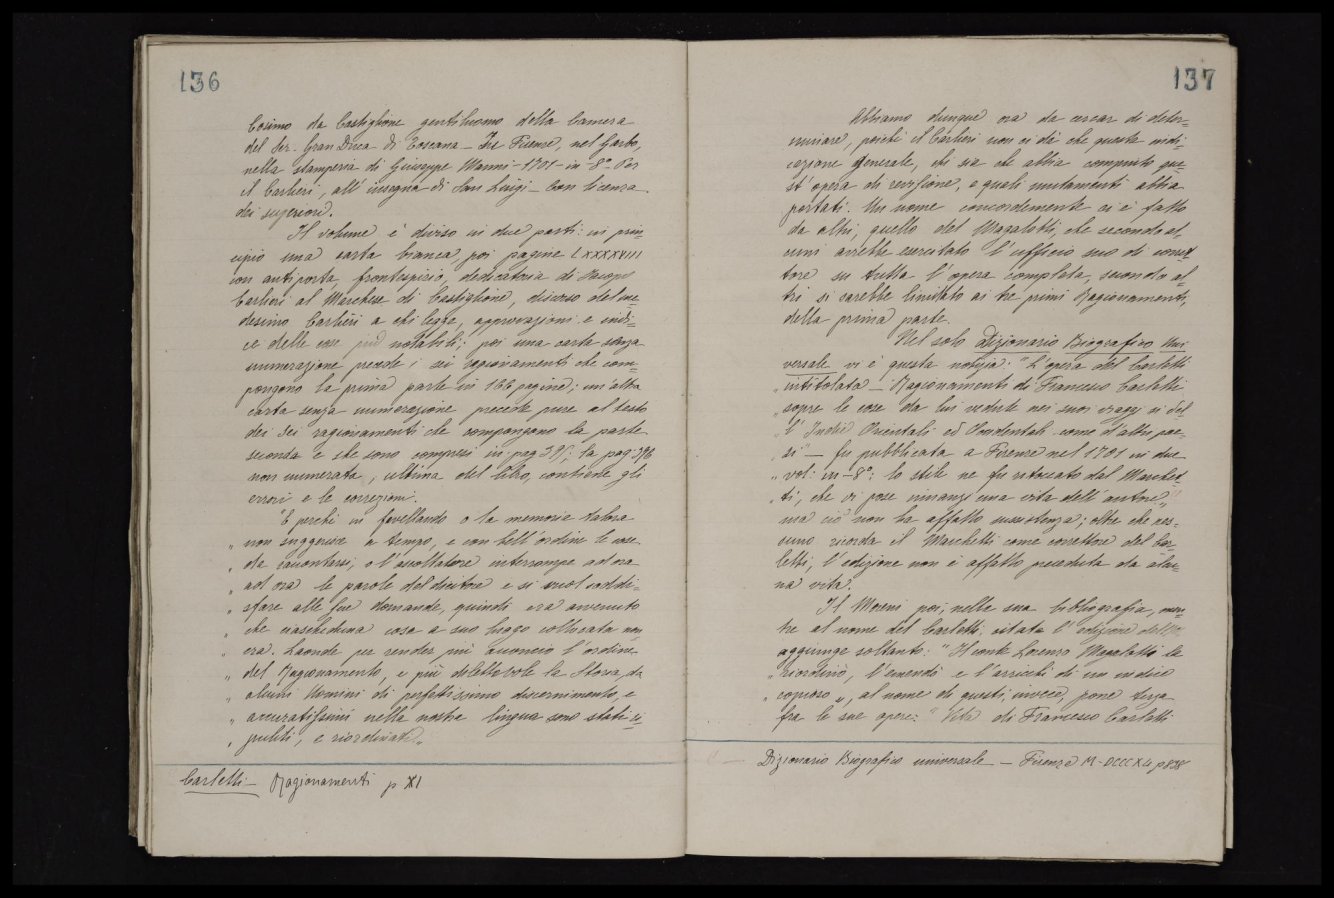 136
Cosimo da Castiglione gentiluomo della Camera
del Ser. Gran Duca di Toscana – In Firenze, nel Garbo,
nella stamperia di Giuseppe Manni – 1701 – in – 8° – Per
il Carlieri, all' insegna di San Luigi – Con licenza
dei superiori.
Il volume è diviso in due parti: in prin=
cipio una carta bianca, poi pagine LXXXXVIII
con antiporta, frontespizio, dedicatoria di Jacopo
Carlieri al Marchese di Castiglione, discorso del me=
desimo Carlieri a chi legge, approvazioni e indi=
ce delle cose più notabili; poi una carta senza
numerazione precede i sei ragionamenti che com=
pongono la prima parte in 166 pagine; un'altra
carta senza numerazione precede pure al testo
dei sei ragionamenti che compongono la parte
seconda e che sono compresi in pag. 395; la pag 396
non numerata, ultima del libro, contiene gli
errori e le correzioni.
"E perchè in favellando o la memoria talora
" non suggerisce a tempo, e con bell'ordine le cose
" da raccontarsi, o l'ascoltatore interrompe ad ora
" ad ora le parole del dicitore e si vuol soddi=
" sfare alle sue domande, quindi era avvenuto
" che ciascheduna cosa a suo luogo collocata non
" era. Laonde per render più acconcio l'ordine
" del Ragionamento, e più dilettevole la Storia, da
" alcuni Uomini di perfettissimo discernimento, e
" accuratissimi nella nostra lingua sono stati ri=
" puliti, e riordinati „
Carletti – Ragionamenti p XI
137
Abbiamo dunque ora da cercar di deter=
minare, poichè il Carlieri non ci dà che questa indi=
cazione generale, chi sia che abbia compiuto que=
st' opera di revisione, e quali mutamenti abbia
portati. Un nome concordemente ci è fatto
da altri, quello del Magalotti, che secondo al=
cuni avrebbe esercitato l'ufficio suo di corret=
tore su tutta l'opera completa, secondo al=
tri si sarebbe limitato ai tre primi Ragionamenti,
della prima parte.
Nel solo Dizionario Biografico Uni
versale vi è questa notizia: "L'opera del Carletti
" intitolata – Ragionamenti di Francesco Carletti
" sopra le cose da lui vedute nei suoi viaggi si del
" l' Indie Orientali ed Occidentali come d'altri pae=
" si" – fu pubblicata a Firenze nel 1701 in due
" vol: in – 8°: lo stile ne fu ritoccato dal Marchet=
" ti, che vi pose innanzi una vita dell'autore „
ma ciò non ha affatto sussistenza; oltre che nes=
suno ricorda il Marchetti come correttore del Car=
letti, l'edizione non è affatto preceduta da alcu=
na vita.
Il Moreni poi, nella sua bibliografia, men=
tre al nome del Carletti, citata l'edizione
aggiunge soltanto: "Il conte Lorenzo Magalotti la
" riordinò, l'emendò e l'arricchì di un indice
" copioso „, al nome di questi, invece, pone terza
fra le sue opere: "Vita di Francesco Carletti
Dizionario Biografico universale – Firenze M-DCCCXLI p 838